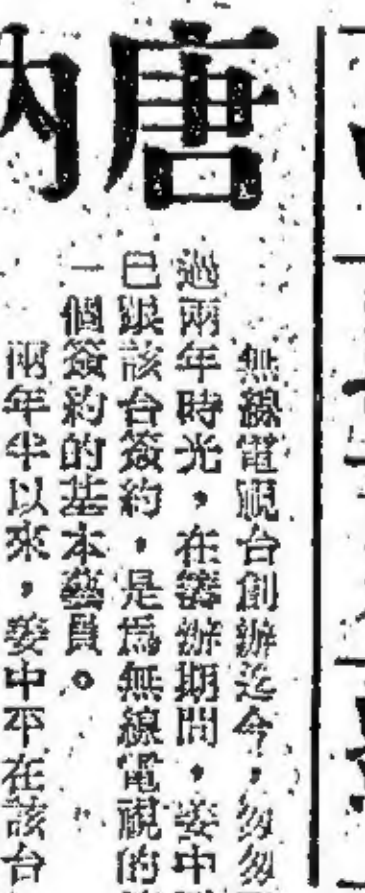 唐納
無線電視台創辦迄今，匆匆
過兩年時光，在籌辦期間，姜中
已跟該台簽約，是爲無線電視的
一個簽約的基本藝員。
兩年半以來，姜中平在該台